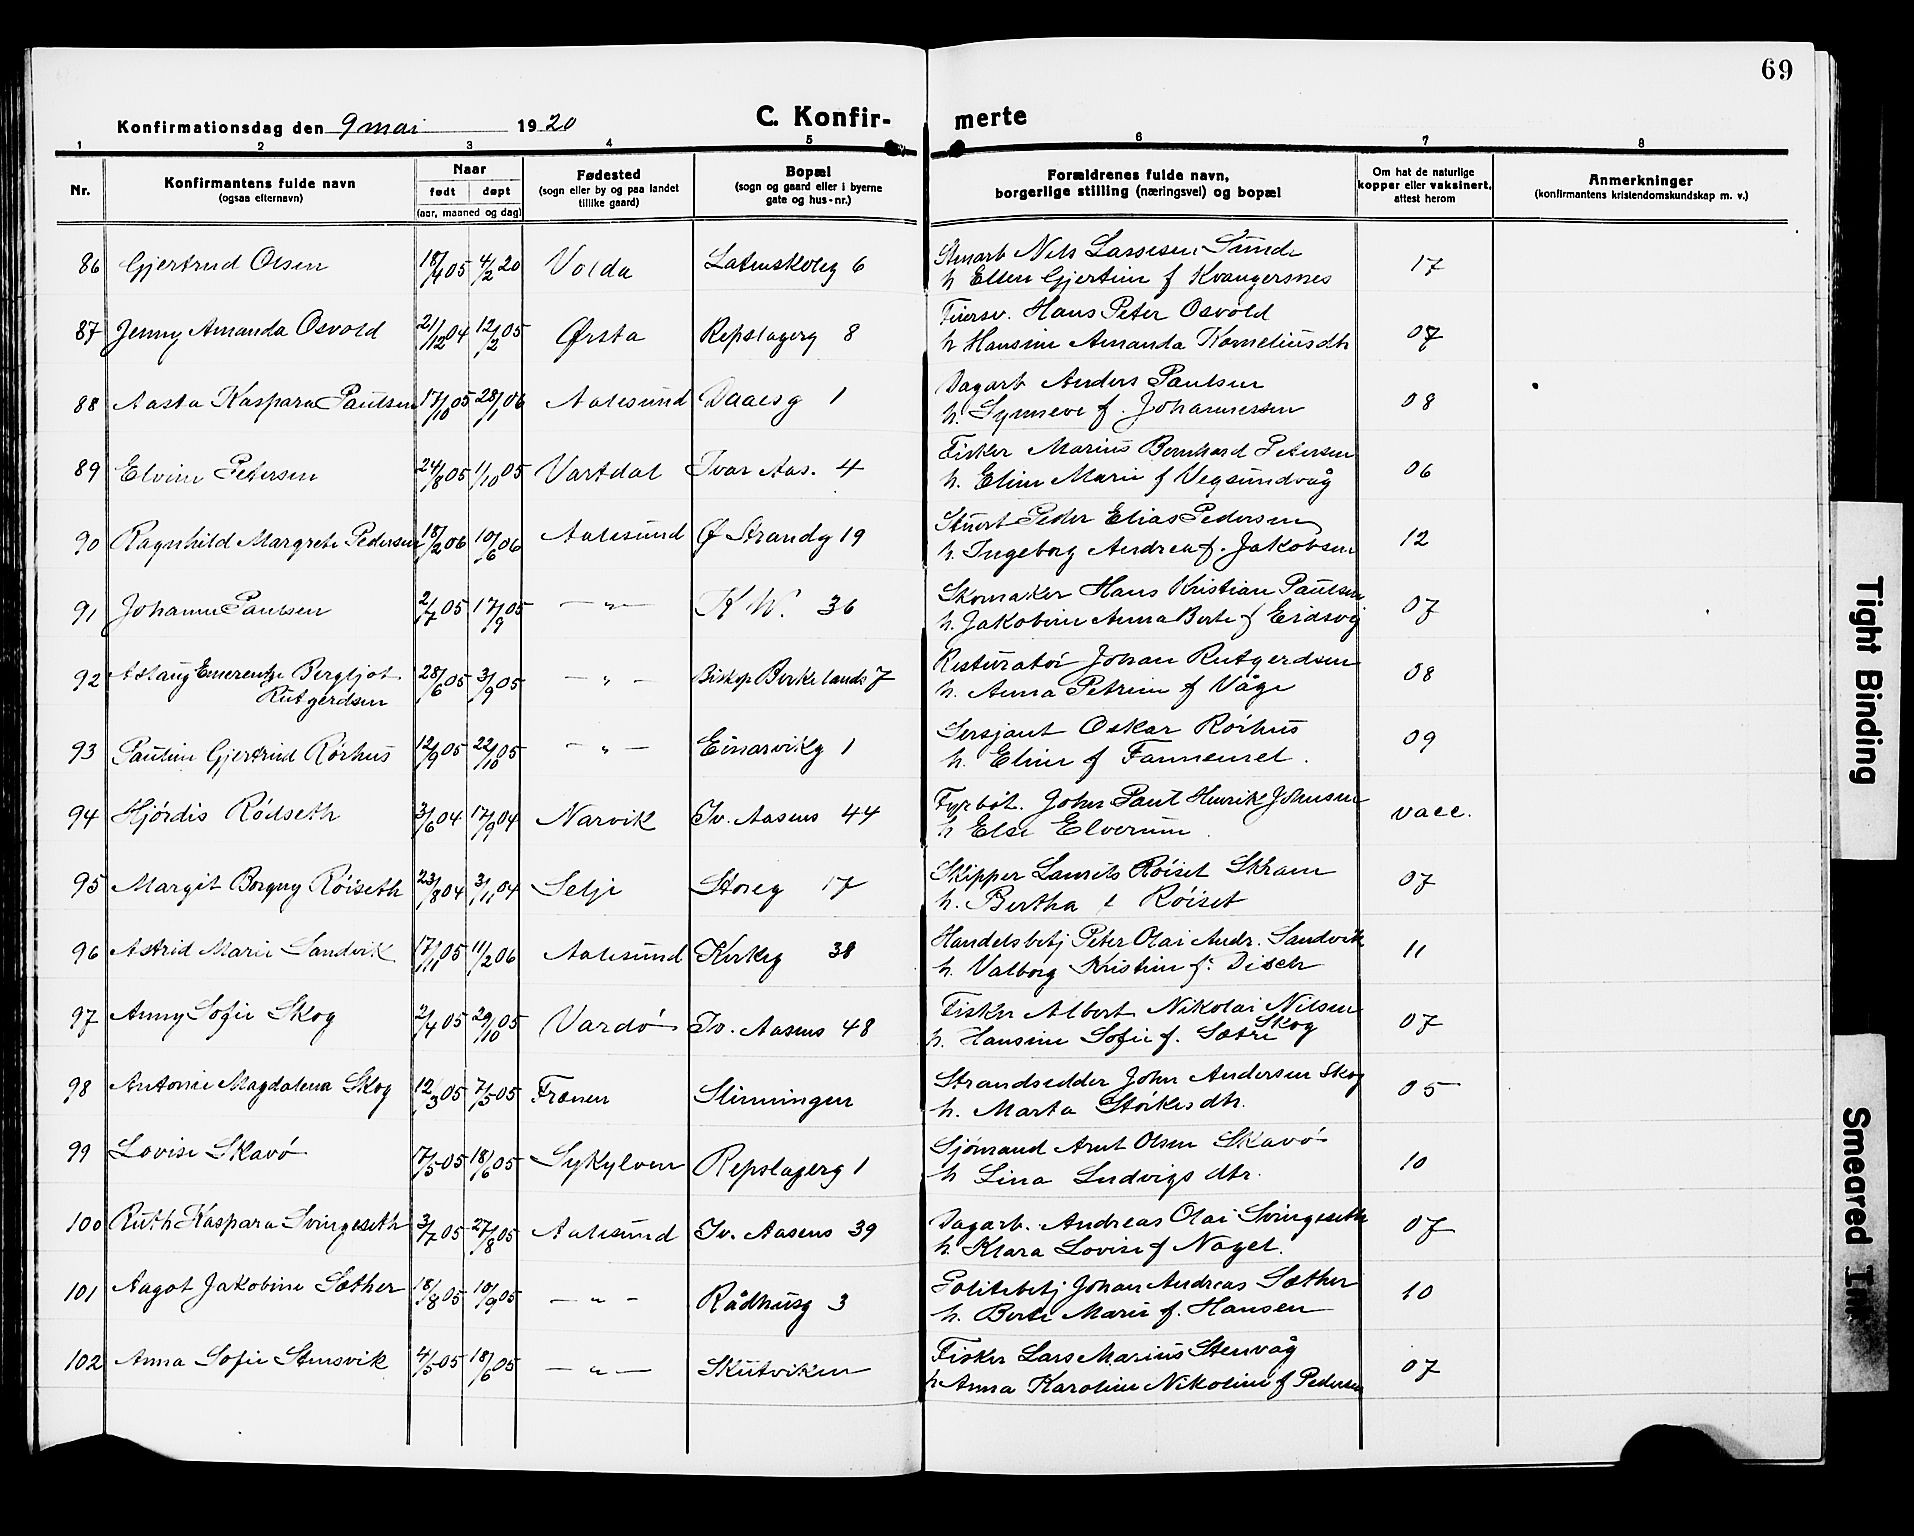 69
Konfirmationsdag den 9 mai 1920 C. Konfir- merte
1 2 3 4 5 6 7 8
Nr. Konfirmantens fulde navn (ogsaa efternavn) Naar født døpt (aar, maaned og dag) Fødested (sogn eller by og paa landet tillike gaard) Bopæl (sogn og gaard eller i byerne gate og hus-nr.) Forældrenes fulde navn, borgerlige stilling (næringsvei) og bopæl Om hat de naturlige kopper eller vaksinert, attest herom Anmerkninger (konfirmantens kristendomskundskap m. v.)
86 Gjertrud Olsen 18/4 05 4/2 20 Volda Latinskoleg 6 Stuarb Nils Lassesen Sunde
h Ellen Gjertine f Kvangersnes 17
87 Jenny Amanda Osvold 21/12 04 12/2 05 Ørsta Repslagerg 8 Hans Peter Osvold
h Hansine Amanda Korneliusdtr 07
88 Aasta Kaspara Paulsen 17/10 05 28/1 06 Aalesund Daaesg 1 Dagarb Anders Paulsen
h. Synneve f. Johannessen 08
89 Elvine Petersen 24/8 05 1/10 05 Vartdal Ivar Aas. 4 Fisker Marius Bernhard Petersen
h. Eline Marie f Vegsundvåg 06
90 Ragnhild Margrete Pedersen 18/2 06 10/6 06 Aalesund Ø Strandg 19 Stuert Peder Elias Pedersen
h. Ingeborg Andrea f. Jakobsen 12
91 Johanne Paulsen 2/7 05 17/9 05 — " — K W. 36 Skomaker Hans Kristian Paulsen
h. Jakobine Anna Berte f Eidsvig 07
92 Aslaug Emerentze Bergljot
Rutgerdsen 28/6 05 3/9 05 — " — Biskop Berkelands 7 Resturatør Johan Rutgerdsen
h. Anna Petrine f Våge 08
93 Pauline Gjertrud Rørhus 12/9 05 22/10 05 — " — Einarvikg 1 Sersjant Oskar Rørhus
h. Eline f Fannemel. 09
94 Hjørdis Rødseth 3/6 04 17/9 04 Narvik Iv. Aasens 44 Fyrbøt. John Paul Henrik Johnsen
h Else Elverum. vacc.
95 Margit Borgny Røiseth 23/8 04 3/11 04 Selje Storeg 17 Skipper Laurits Røiset Skram
h. Bertha f Røiset 07
96 Astrid Marie Sandvik 17/11 05 11/2 06 Aalesund Kirkeg 38 Handelsbetj Peter Olai Andr. Sandvik
h. Valborg Kristine f. Disch 11
97 Anny Sofie Skog 2/4 05 29/10 05 Vardø Iv. Aasens 48 Fisker Albert Nikolai Nilsen
Skog
h. Hansine Sofie f. Sætre 07
98 Antonie Magdalena Skog 12/3 05 7/5 05 Frænen Slinningen Strandsedder John Andersen Skog
h. Marta Størkersdtr. 05
99 Lovise Skavø 17/5 05 18/6 05 Sykylven Repslagerg 1 Sjømand Arnt Olsen Skavø
h Lina Ludvigs dtr. 10
100 Ruth Kaspara Svingeseth 3/7 05 27/8 05 Aalesund Iv. Aasens 39 Dagarb. Andreas Olai Svingeseth
h. Klara Lovise f Nagel. 07
101 Aagot Jakobine Sæther 18/8 05 10/9 05 — " — Rådhusg 3 Politibetj Johan Andreas Sæther
h. Berte Marie f. Hansen 10
102 Anna Sofie Stensvik 4/5 05 18/6 05 — " — Skutviken Fisker Lars Marius Stenvåg
h Anna Karoline Nikoline f Pedersen 07
Tight Binding
Smeared Ink